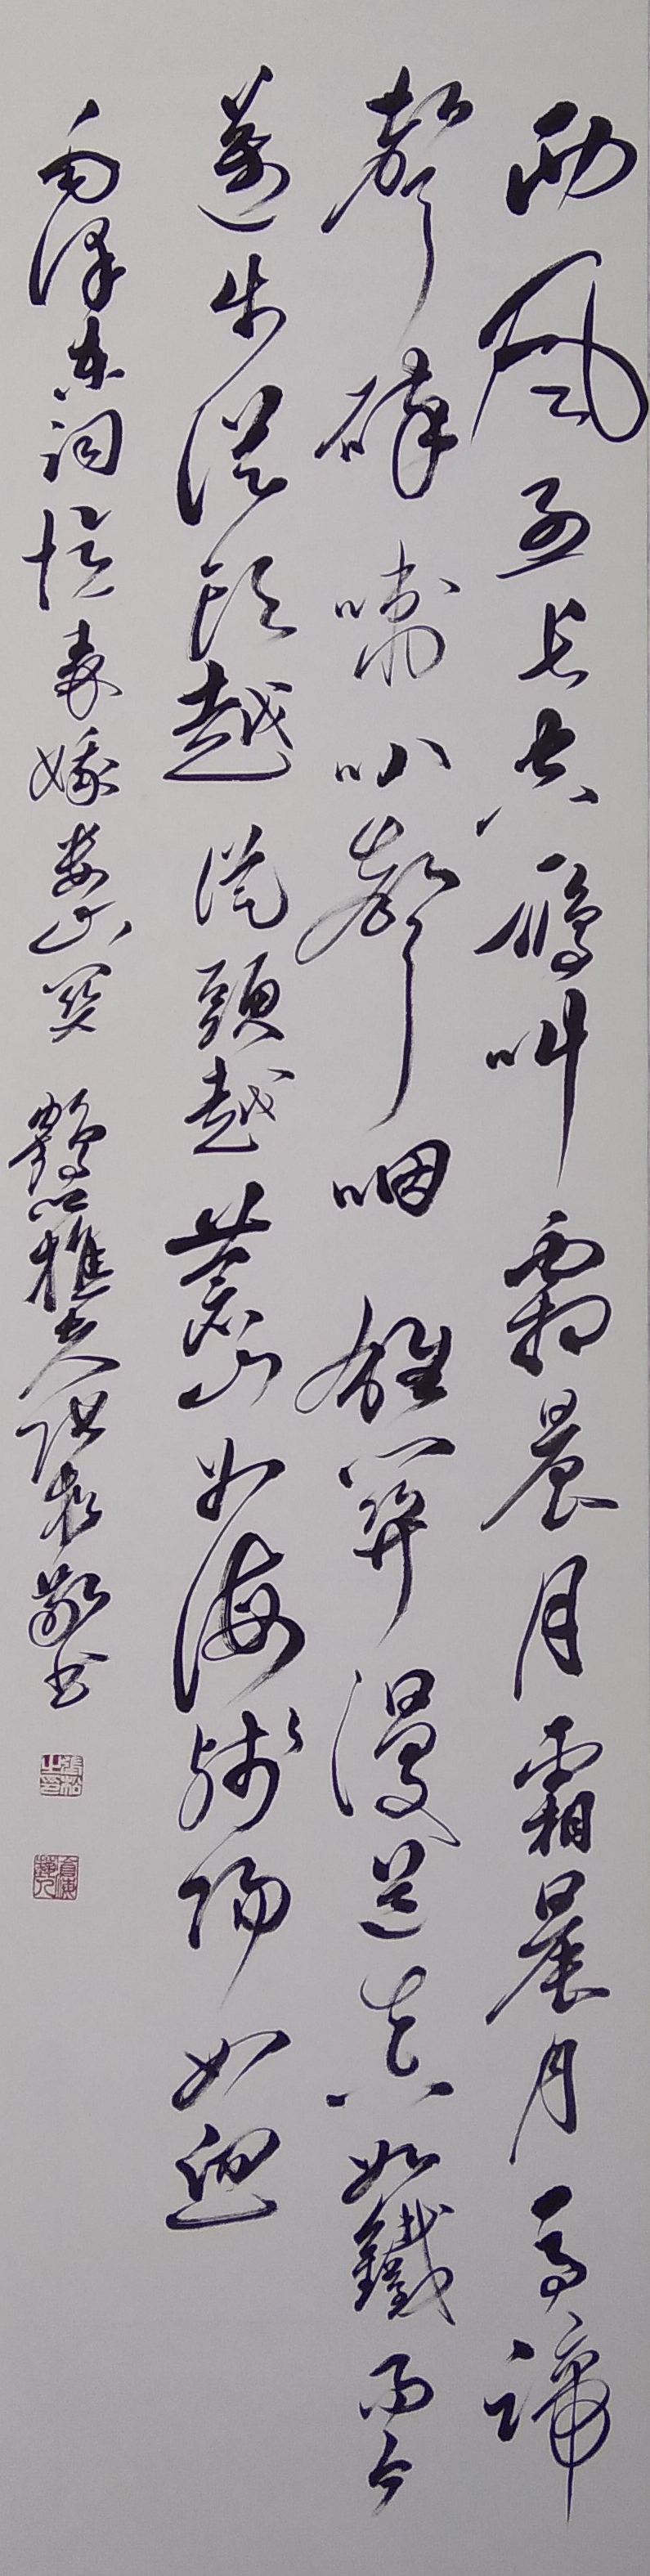 西風烈長空鴈叫霜晨月霜晨月馬蹄
聲碎喇叭聲咽雄關漫道真如鐵而今
邁步從頭越從頭越蒼山如海殘陽如血
毛澤東詞憶秦娥婁山關 鶴山樵夫張松敬書
張松之印